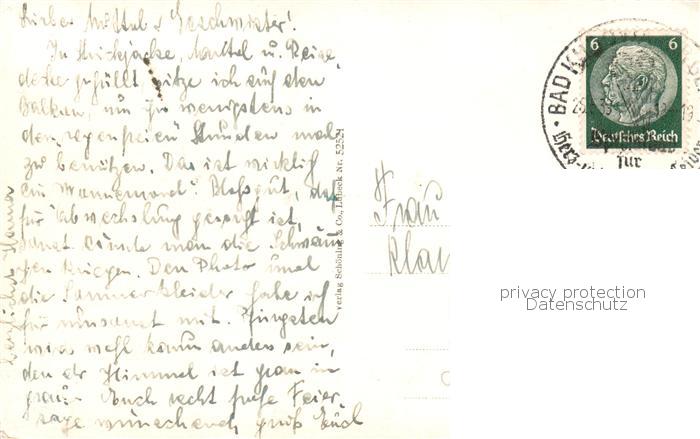 Liebes Muttel u. Geschwister!
In Strickjacke, Mantel u. Reise
decke gehüllt sitze ich auf den
Balkon, um ihn wenigstens in
den regenfreien Stunden mal
zu benützen. Das ist wirklich
ein Wonnemond! Bloß gut, daß
für Abwechslung gesorgt ist,
sonst könnte man die
kriegen. Den Photo und
die Sommerkleider habe ich
für umsonst mit. Pfingsten
wird wohl kaum anders sein,
den der Himmel ist grau in
grau. Euch recht frohe Feier
tage wünschend, grüß Euch
herzlichst Hanna
Verlag Schöning & Co., Lübeck Nr. 52521
Frau
Kla
6 6
Deutsches Reich
BAD K
für
Herz-
privacy protection
Datenschutz